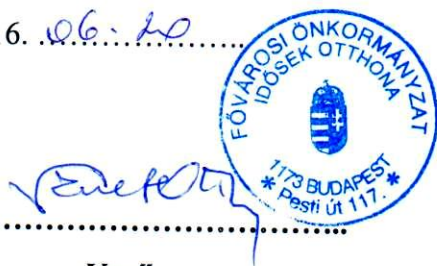 6. 06. 20
FŐVÁROSI ÖNKORMÁNYZAT
IDŐSEK OTTHONA
1173 BUDAPEST
* Pesti út 117. *